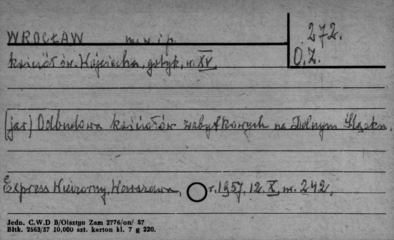 WROCŁAW m.w.i.p. 272.
kościół św. Wojciecha, gotyk, w. XV. O.Z.
(jar) Odbudowa kościołów zabytkowych na Dolnym Śląsku.
Express Wieczorny, Warszawa, r. 1957. 12. X, nr. 242.
Jedn. C.W.D B/Olsztyn Zam 2776/on/ 57
Bltk. 2563/57 10,000 szt. karton kl. 7 g 220.